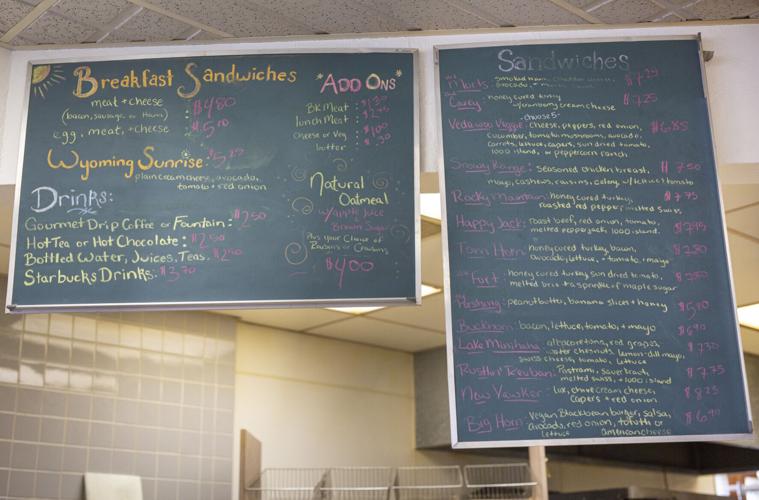 Breakfast Sandwiches
meat + cheese $4.80
(bacon, sausage, or Ham)
egg, meat, + cheese $5.10
Wyoming Sunrise: $5.25
plain cream cheese, avocado,
tomato + red onion
Drinks:
Gourmet Drip Coffee or Fountain: $2.50
Hot Tea or Hot Chocolate: $2.50
Bottled Water, Juices, Teas. $2.50
Starbucks Drinks: $3.70
*ADD ONS*
BK Meat :
lunch Meat :
cheese or Veg : $1.00
butter :
Natural
Oatmeal
w/apple Juice
Brown Sugar
Plus your Choice of
Raisins or Craisins
$4.00
Sandwiches
Morts: smoked ham, cheddar cheese, $7.25
avocado,
Carey: honey cured turkey $7.25
w/cranberry cream cheese
-choose 5-
Vedauwoo Veggie: cheese, peppers, red onion, $6.85
cucumber, tomato, mushrooms, avocado,
carrots, lettuce, capers, sun dried tomato,
1000 island, or peppercorn ranch
Snowy Range: seasoned chicken breast, $7.50
mayo, cashews, raisins, celery, w/lettuce + tomato
Rocky Mountain: honey cured turkey, $7.75
roasted red pepper, melted swiss,
Happy Jack: roast beef, red onion, tomato,
melted pepperjack, 1000 island.
Tom Horn: honey cured turkey, bacon,
avocado, lettuce, + tomato, + mayo
Fort: honey cured turkey, sun dried tomato,
melted brie + a sprinkle of maple sugar
Pershing: peanut butter, banana slices + honey
Buckhorn: bacon, lettuce, tomato, + mayo $6.90
Lake Minnehaha: albacore tuna, red grapes, $7.30
water chesnuts, lemon-dill mayo,
swiss cheese, tomato, lettuce
Rustler Reuban: Pastrami, sauerkraut, $7.75
melted swiss, + 1000 island
New Yawker: lox, chive cream cheese, $8.25
capers + red onion
Big Horn: Vegan Blackbean burger, salsa, $6.90
avocado, red onion, tomato
lettuce american cheese